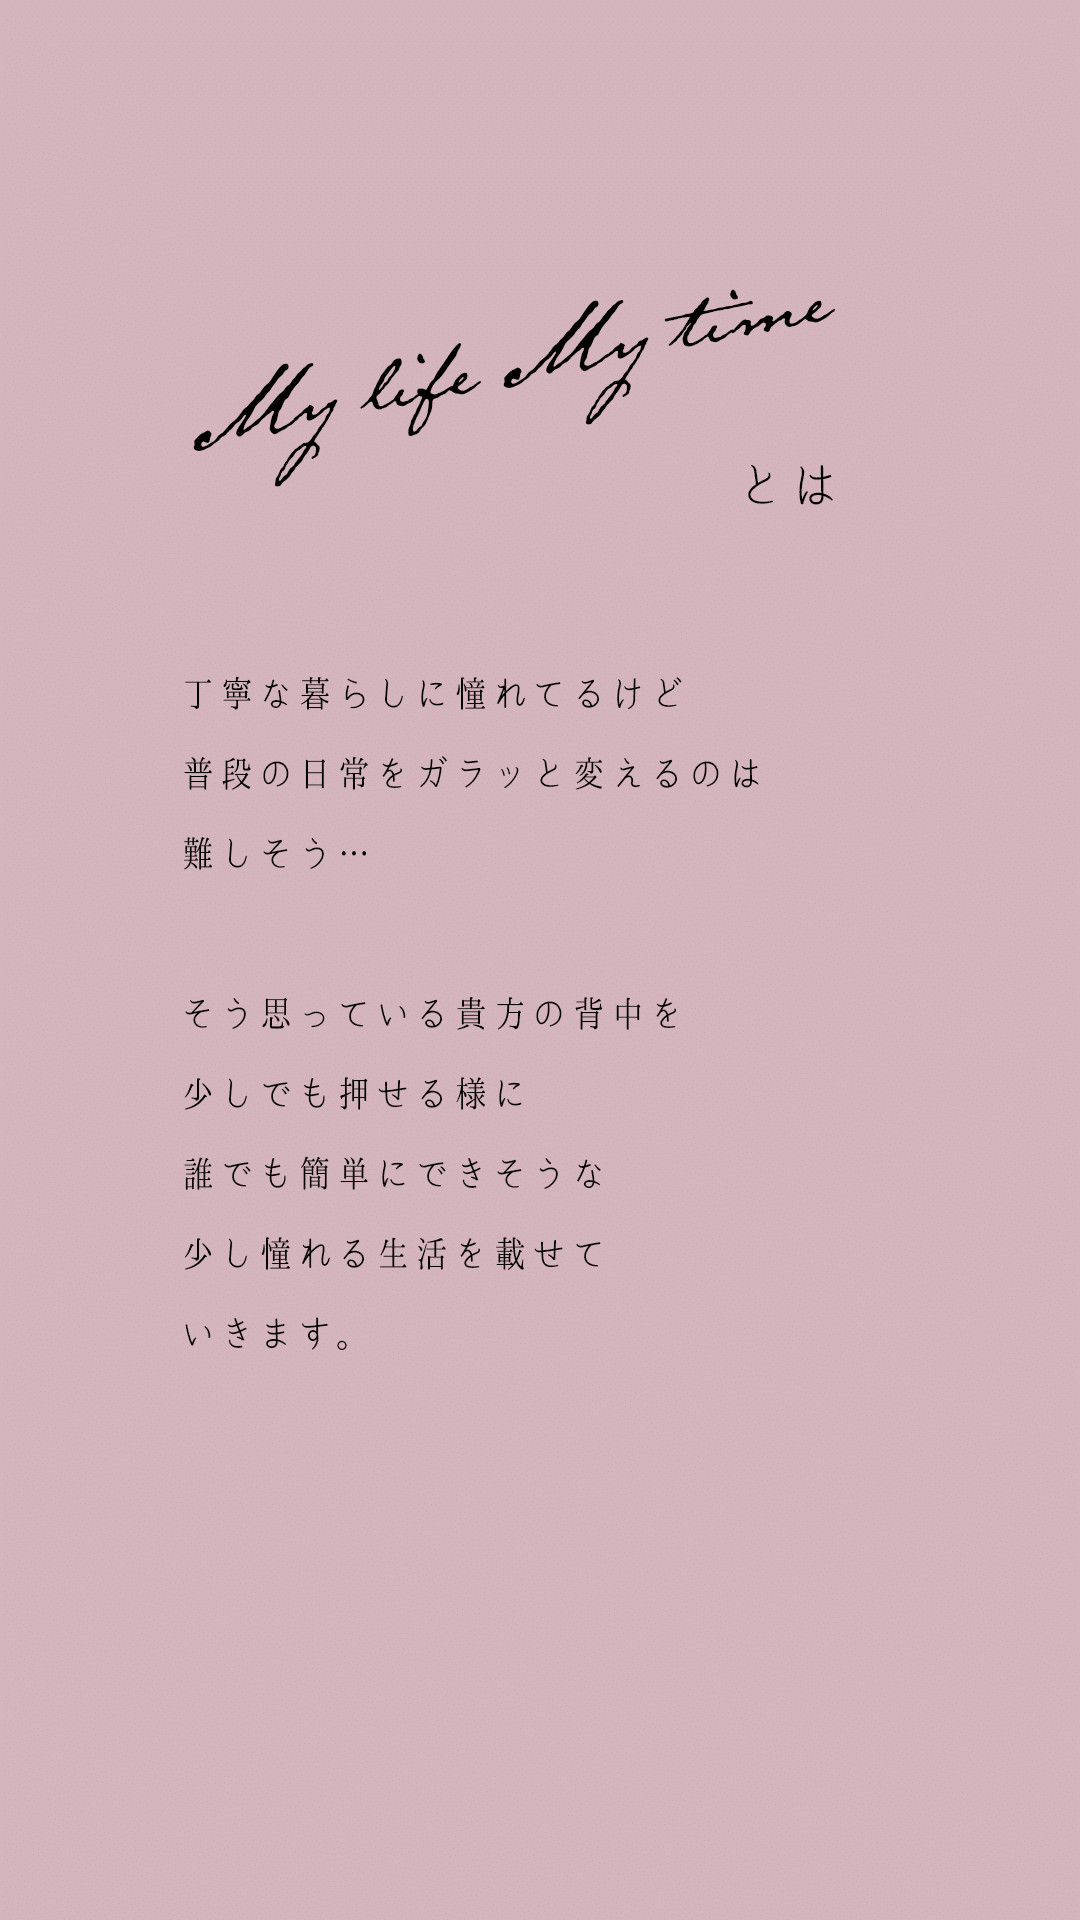 My life My time
とは
丁寧な暮らしに憧れてるけど
普段の日常をガラッと変えるのは
難しそう…
そう思っている貴方の背中を
少しでも押せる様に
誰でも簡単にできそうな
少し憧れる生活を載せて
いきます。